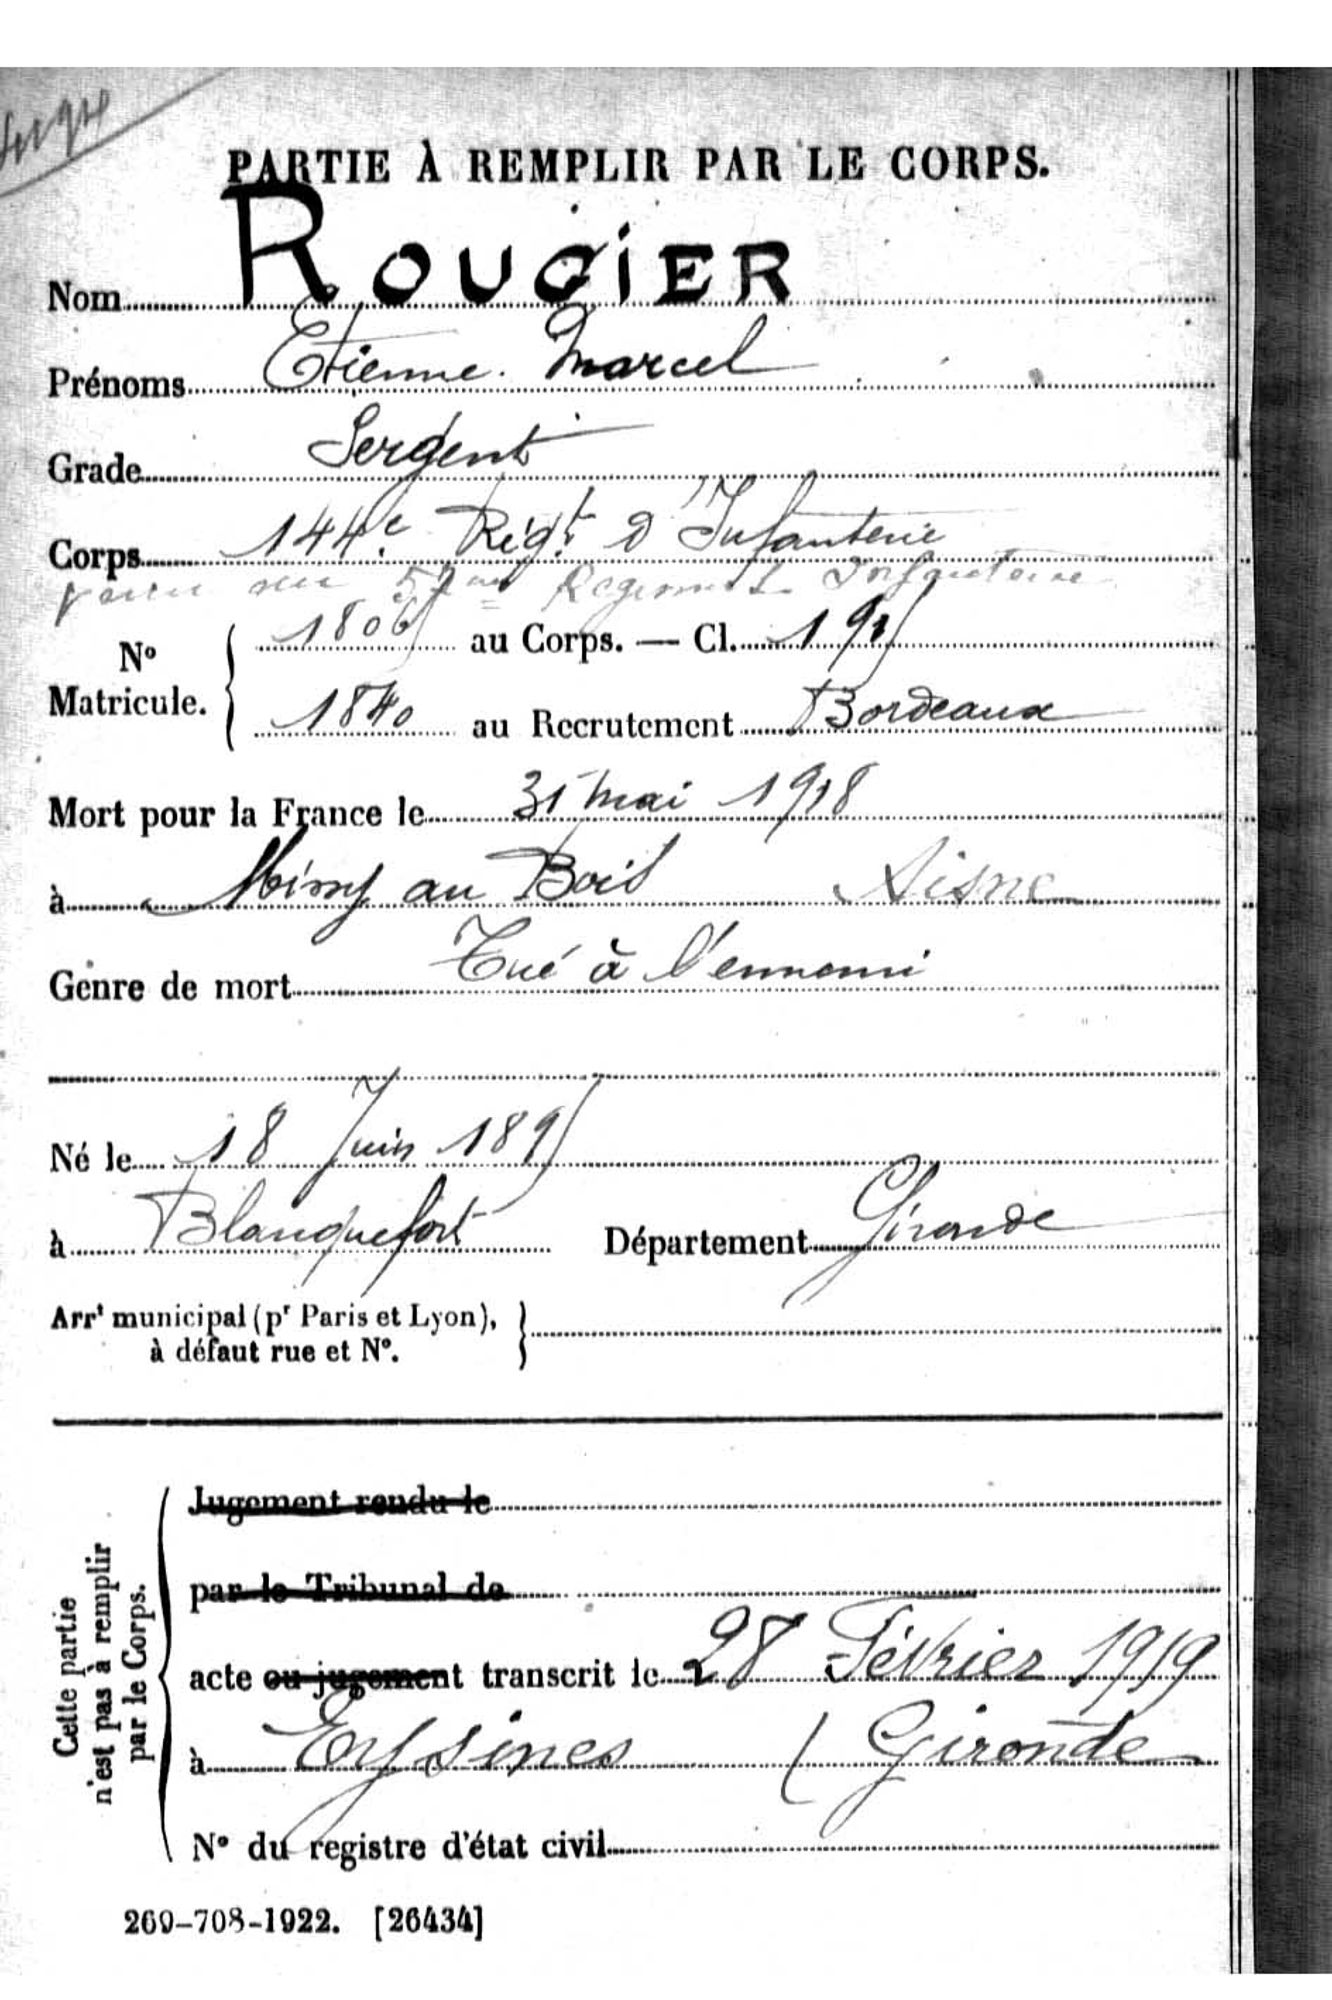 PARTIE À REMPLIR PAR LE CORPS.
Nom ROUGIER
Prénoms Etienne. Marcel
Grade Sergent
Corps 144e Régt d'Infanterie
57me Regiment Infanterie
N° Matricule. 1806 au Corps. — Cl. 1915
1840 au Recrutement Bordeaux
Mort pour la France le 31 mai 1918
à au Bois Aisne
Genre de mort Tué à l'ennemi
Né le 18 Juin 1895
à Blanquefort Département Gironde
Arrt municipal (pr Paris et Lyon),
à défaut rue et N°.
Cette partie
n'est pas à remplir
par le Corps.
Jugement rendu le
par le Tribunal de
acte ou jugement transcrit le 28 Février 1919
à Eysines (Gironde
N° du registre d'état civil
269-708-1922. [26434]